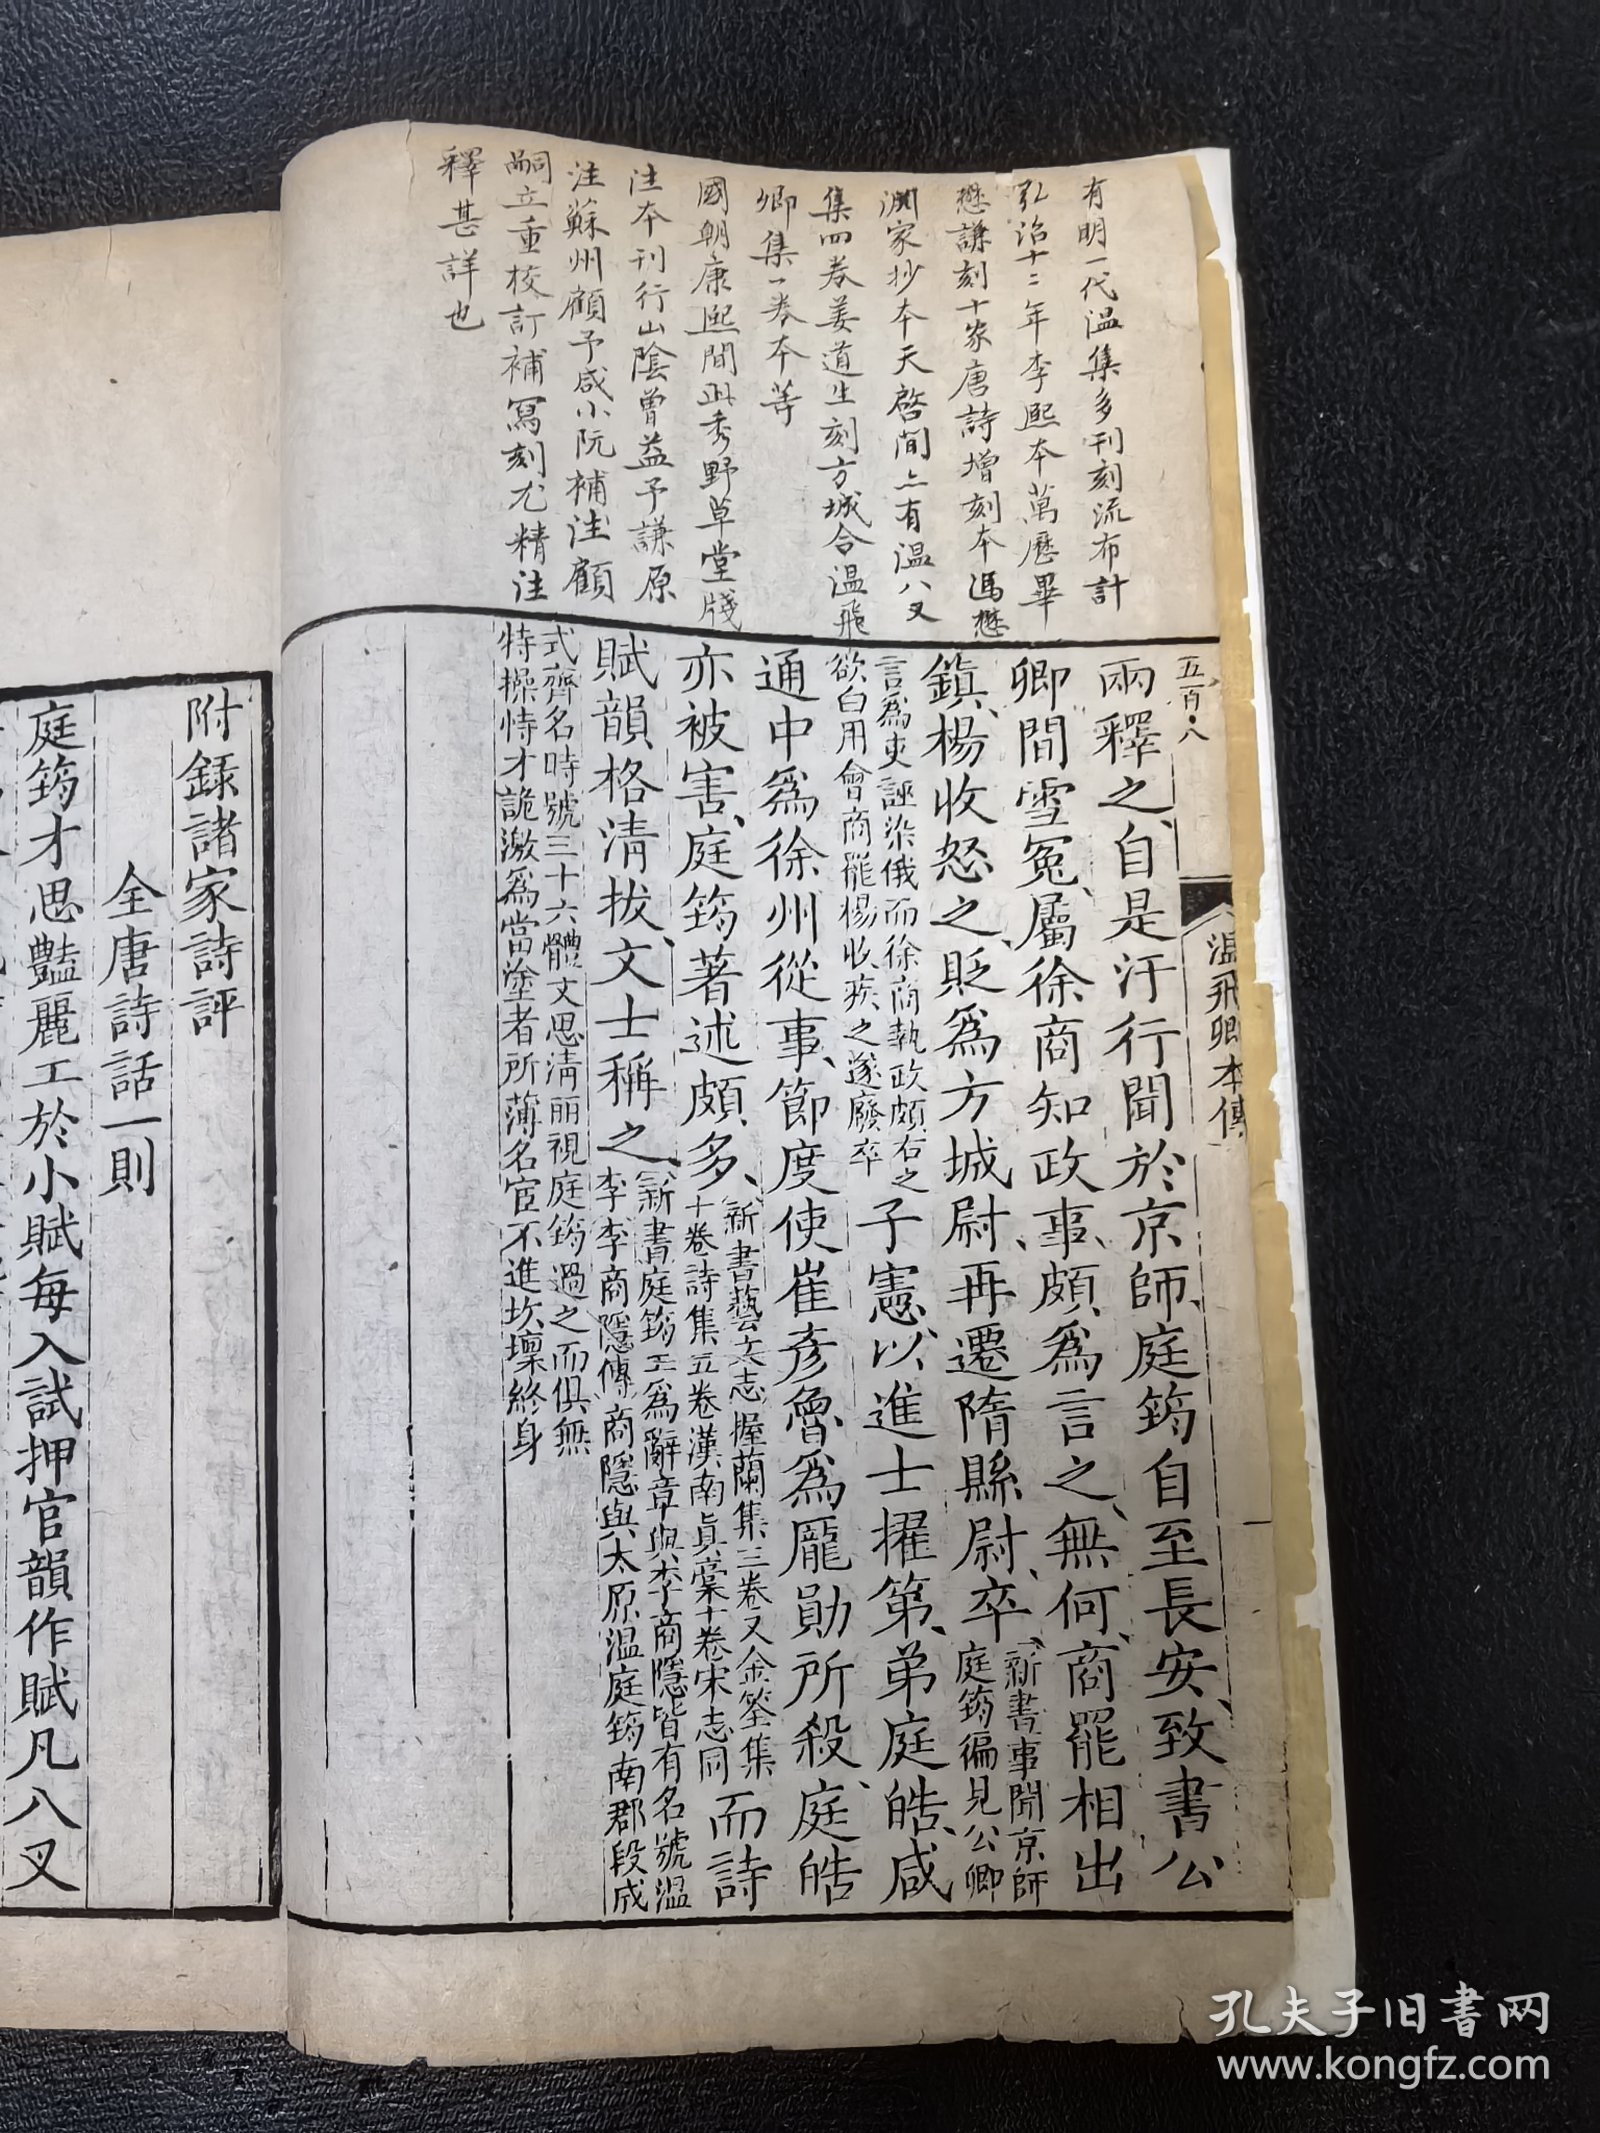 有明一代温集多刊刻流布計
弘治十二年李熙本萬歷畢
懋謙刻十家唐詩增刻本馮懋
渊家抄本天啓間上有温八叉
集四卷姜道生刻方城合温飛
卿集一卷本等
國朝康熙間此秀野草堂牋
注本刊行山陰曾益予謙原
注蘇州顧予咸小阮補注顧
嗣立重校訂補寫刻尤精注
釋甚詳也
五百八
温飛卿本傳
兩釋之自是汙行聞於京師庭筠自至長安致書公
卿間雪冤屬徐商知政事頗爲言之無何商罷相出
鎮楊收怒之貶爲方城尉再遷隋縣尉卒新書事聞京師
庭筠徧見公卿
言爲吏誣染俄而徐商執政頗右之
欲白用會商罷楊收疾之遂廢卒
子憲以進士擢第弟庭皓咸
通中爲徐州從事節度使崔彦魯爲龎勛所殺庭皓
亦被害庭筠著述頗多新書藝文志握蘭集三卷又金筌集
十卷詩集五卷漢南真稾十卷宋志同
而詩
賦韻格清拔文士稱之新書庭筠工爲辭章與李商隱皆有名號温
李李商隱傳商隱與太原温庭筠南郡段成
式齊名時號三十六體文思清丽視庭筠過之而俱無
特操恃才詭激爲當塗者所薄名宦不進坎壈終身
附録諸家詩評
全唐詩話一則
庭筠才思豔麗工於小賦每入試押官韻作賦凡八叉
孔夫子旧書网
www.kongfz.com